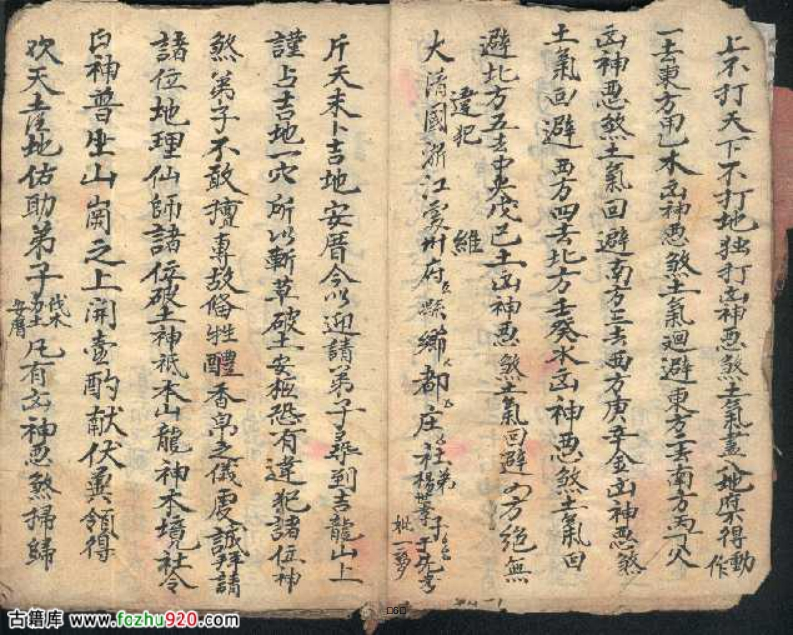 上不打天下不打地独打凶神恶煞土氣盡入地府不得動作
一去東方甲乙木凶神恶煞土氣廻避東方二去南方丙丁火
凶神恶煞土氣回避南方三去西方庚辛金凶神恶煞
土氣回避西方四去北方壬癸水凶神恶煞土氣回
避北方五去中央戊己土凶神恶煞土氣回避四方絕無
違犯 維
大清國浙江處州府縣鄉都庄社弟子
斤天未卜吉地安厝今以迎請弟子到吉龍山上
謹占吉地一穴所以斬草破土安柩恐有違犯諸位神
煞弟子不敢擅專故俻牲醴香帛之儀虔誠拜請
諸位地理仙師諸位破土神祇本山龍神本境社令
白神普坐山崗之上開壺酌献伏冀領得
欢天土地佑助弟子伐木安厝凡有凶神恶煞掃歸
古籍库:www.fozhu920.com